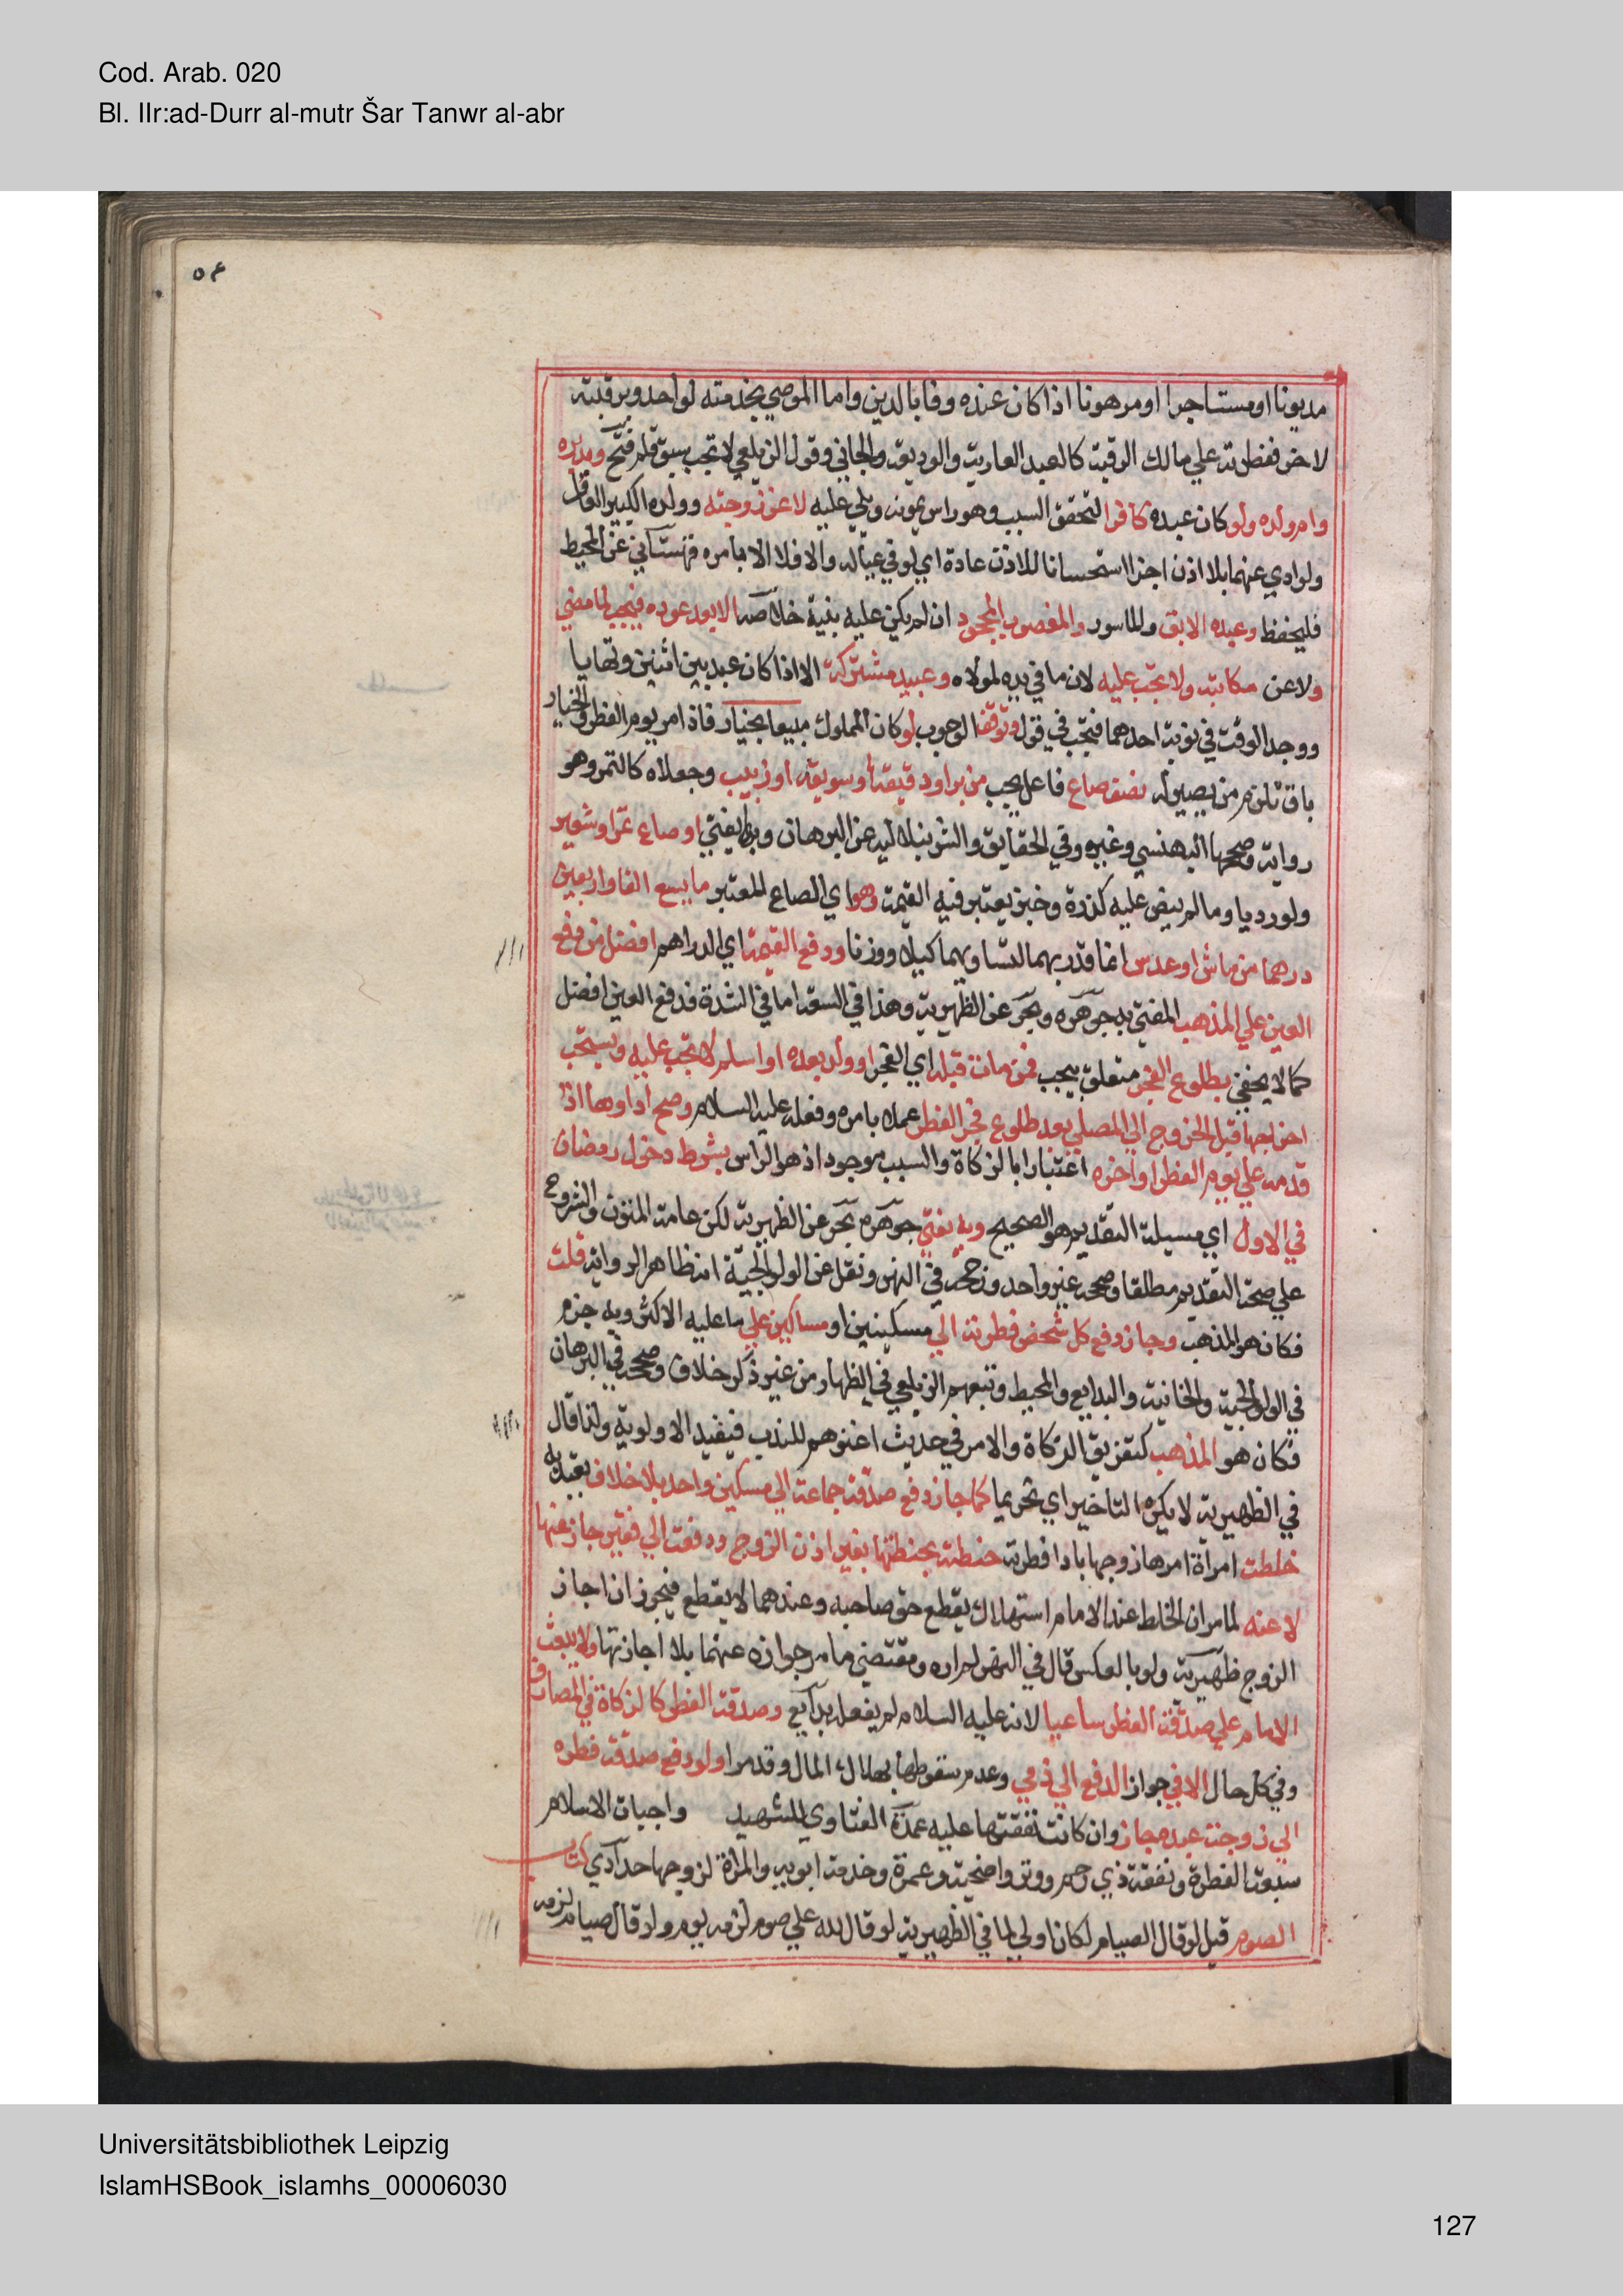 Cod. Arab. 020
Bl. IIr:ad-Durr al-mutr Šar Tanwr al-abr
مديونا او مستاجرا او مرهونا اذا كان عنده وفا بالدين واما الموصي بخدمته لواحد وبرقبته
لاخر ففطرته علي مالك الرقبة كالعبد العارية والوديعة والجاني وقول الزيلعي لا تجب سبق قلم فتح ومدبره
وام ولده ولو كان عبده كافرا لتحقق السبب وهو راس يمونه ويلي عليه لا عن زوجته وولده الكبير العاقل
ولو ادي عنهما بلا اذن اجزا استحسانا للاذن عادة اي لو في عياله والا فلا الا بامره قهستاني عن المحيط
فليحفظ وعبده الابق والماسور والمغصوب المجحود ان لم يكن عليه بنية خلاصه الا بعد عوده فيجب لما مضي
ولا عن مكاتبه ولا تجب عليه لان ما في يده لمولاه وعبيد مشتركة الا اذا كان عبد بين اثنين وتهايا
ووجد الوقت في نوبة احدهما فتجب في قول وتوقف الوجوب لو كان المملوك مبيعا بخيار فاذا مر يوم الفطر والخيار
باق تلزم من يصير له نصف صاع فاعل يجب من بر او دقيقه او سويقه او زبيب وجعلاه كالتمر وهو
رواية وصححها البهنسي وغيره وفي الحقايق والشرنبلالية عن البرهان وبه يفتي او صاع تمر او شعير
ولو رديا وما لم ينص عليه كذرة وخبز يعتبر فيه القيمة وهو اي الصاع المعتبر ما يسع الفا واربعين
درهما من ماش او عدس انما قدر بهما لتساويهما كيلا ووزنا ودفع القيمة اي الدراهم افضل من دفع
العين علي المذهب المفتي به جوهره وبحر عن الظهيرية وهذا في السعة اما في الشدة فدفع العين افضل
كما لا يخفي بطلوع الفجر متعلق بيجب فمن مات قبله اي الفجر او ولد بعده او اسلم لا تجب عليه ويستحب
اخراجها قبل الخروج الي المصلي بعد طلوع فجر الفطر عملا بامره وفعله عليه السلام وصح اداوها اذا
قدمه علي يوم الفطر او اخره اعتبارا بالزكاة والسبب موجود اذ هو الراس بشرط دخول رمضان
في الاول اي مسيلة التقديم هو الصحيح وبه يفتي جوهره بحر عن الظهيرية لكن عامة المتون والشروح
علي صحة التقديم مطلقا وصححه غير واحد ورجحه في النهر ونقل عن الولوالجية انه ظاهر الرواية قلت
فكان هو المذهب وجاز دفع كل شخص فطرته الي مسكينين او مساكين علي ما عليه الاكثر وبه جزم
في الولوالجية والخانية والبدايع والمحيط وتبعهم الزيلعي في الظهار من غير ذكر خلاف وصححه في البرهان
فكان هو المذهب كتفريق الزكاة والامر في حديث اغنوهم للندب فيفيد الاولوية ولذا قال
في الظهيرية لا يكره التاخير اي تحريما كما جاز دفع صدقة جماعة الي مسكين واحد بلا خلاف يعتد به
خلطت امراة امرها زوجها باداء فطرته حنطته بحنطتها بغير اذن الزوج ودفعت الي فقير جاز عنها
لا عنه لما مر ان الخلط عند الامام استهلاك يقطع حق صاحبه وعندهما لا يقطع فيجوز ان اجاز
الزوج ظهيرية ولو بالعكس قال في النهر لم اره ومقتضي ما مر جوازه عنهما بلا اجازتها ولا يبعث
الامام علي صدقة الفطر ساعيا لانه عليه السلام لم يفعله بدايع وصدقة الفطر كالزكاة في المصارف
وفي كل حال الا في جواز الدفع الي ذمي وعدم سقوطها بهلاك المال وقد مر ولو دفع صدقة فطره
الي زوجة عبده جاز وان كانت نفقتها عليه عمدة الفتاوي للشهيد واجبات الاسلام
سبعة الفطرة ونفقة ذي رحم ووتر واضحية وعمرة وخدمة ابويه والمراة لزوجها حدادي كتاب
الصوم قيل لو قال الصيام لكان اولي لما في الظهيرية لو قال لله علي صوم لزمه يوم ولو قال صيام لزمه
Universitätsbibliothek Leipzig
IslamHSBook_islamhs_00006030
127